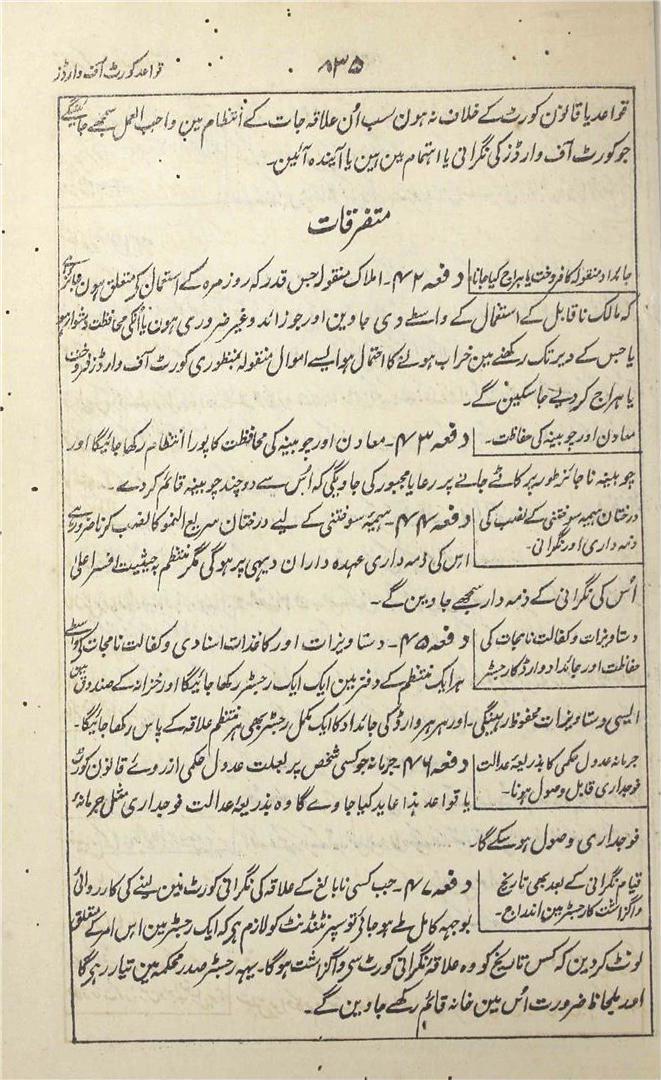 قواعد کورٹ آف وارڈز
۸۳۵
قواعد یا قانون کورٹ کے خلاف نہ ہون سب اُن علاقہ جات کے انتظام مین واجب العمل سمجھے جائینگے
جو کورٹ آف وارڈز کی نگرانی یا اہتمام مین ہین یا آیندہ آئین۔
متفرقات
جائداد منقولہ کا فروخت یا ہراج کیا جانا
دفعہ ۴۲۔ املاک منقولہ جس قدر کہ روزمرہ کے استعمال کے متعلق ہون
کہ مالک ناقابل کے استعمال کے واسطے دی جاوین اور جو زائد و غیر ضروری ہون یا اُنکی محافظت دشوار ہو
یا جس کے دیر تک رکھنے مین خراب ہونے کا احتمال ہو ایسے اموال منقولہ بمنظوری کورٹ آف وارڈز فروخت
یا ہراج کر دیے جا سکین گے۔
معادن اور چوبینہ کی حفاظت۔
دفعہ ۴۳۔ معادن اور چوبینہ کی محافظت کا پورا انتظام رکھا جائیگا اور
چوبینہ ناجائز طور پر کاٹے جانے پر رعایا مجبور کی جاویگی کہ اُس سے دوچند چوبینہ قائم کر دے۔
درختان ہیمہ سوختنی کے نصب کی
ذمہ داری اور نگرانی۔
دفعہ ۴۴۔ ہیمۂ سوختنی کے لیے درختان سریع النمو کا نصب کرنا ضرور ہے
اس کی ذمہ داری عہدہ داران دیہی پر ہوگی مگر منتظم بحیثیت افسر اعلیٰ
اُس کی نگرانی کے ذمہ دار سمجھے جاوین گے۔
دستاویزات و کفالت نامجات کی
حفاظت اور جائداد وارڈ کا رجسٹر
دفعہ ۴۵۔ دستاویزات اور کاغذات اسنادی و کفالت نامجات کے واسطے
ہر ایک منتظم کے دفتر مین ایک ایک رجسٹر رکھا جائیگا اور خزانہ کے صندوق مین
ایسی دستاویزات محفوظ رہینگی۔ اور ہر ہر وارڈ کی جائداد کا ایک مکمل رجسٹر بھی ہر منتظم علاقہ کے پاس رکھا جائیگا۔
جرمانہ عدول حکمی کا بذریعہ عدالت
فوجداری قابل وصول ہونا۔
دفعہ ۴۶۔ جرمانہ جو کسی شخص پر بعلت عدول حکمی از روے قانون کورٹ
یا قواعد ہذا عاید کیا جاوے گا وہ بذریعۂ عدالت فوجداری مثل جرمانۂ
فوجداری وصول ہو سکے گا۔
قیام نگرانی کے بعد بھی تاریخ
واگزاشت کا رجسٹر مین اندراج۔
دفعہ ۴۷۔ جب کسی نابالغ کے علاقہ کی نگرانی کورٹ مین لینے کی کارروائی
بوجہہ کامل طے ہو جائے تو سپرنٹنڈنٹ کو لازم ہے کہ ایک رجسٹر مین اس امر کے متعلق
نوٹ کر دین کہ کس تاریخ کو وہ علاقہ نگرانی کورٹ سے واگزاشت ہوگا۔ یہہ رجسٹر صدر محکمہ مین تیار رہے گا
اور بلحاظ ضرورت اُس مین خانہ قائم رکھے جاوین گے۔